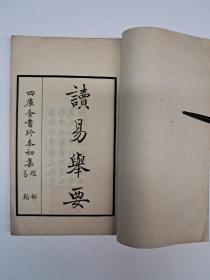 讀易舉要
四庫全書珍本初集
經部
易類